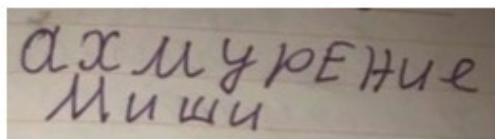 ахмурение
Миши